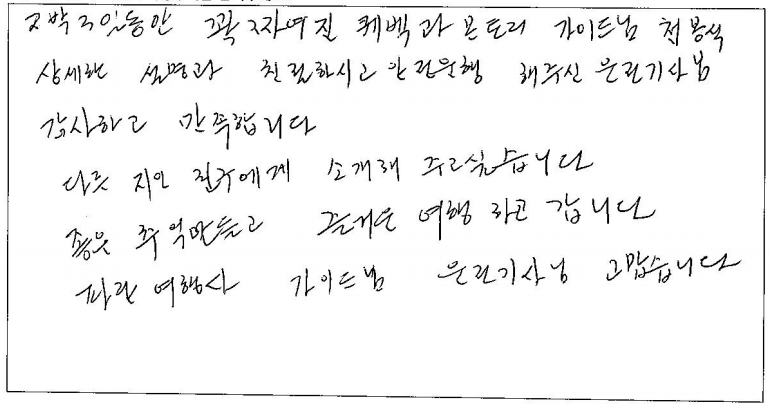 2박3일동안 꽉 짜여진 퀘벡과 몬토리 가이드님
상세한 설명과 친절하시고 안전운행 해주신 운전기사님
감사하고 만족합니다
다른 지인 친구에게 소개해 주고싶습니다
좋은 추억만들고 즐거운 여행 하고 갑니다
파란 여행사 가이드님 운전기사님 고맙습니다